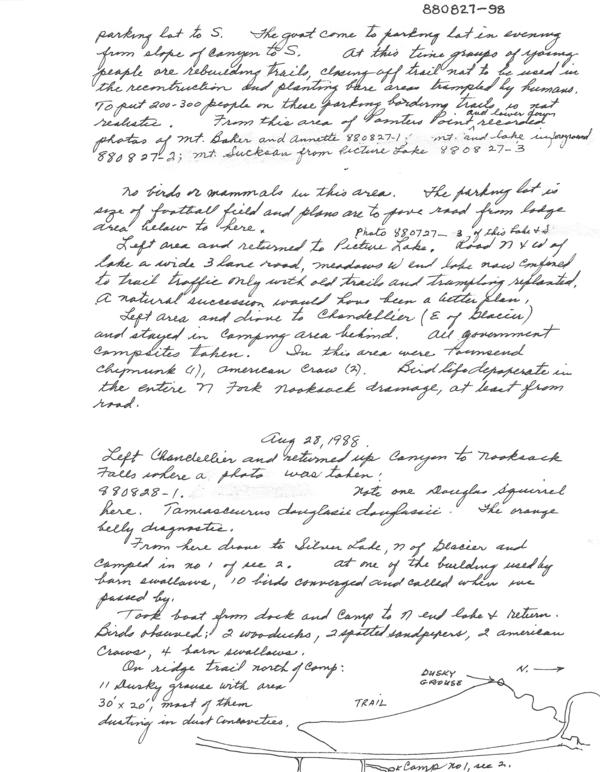 880827-98
parking lot to S. The goat come to parking lot in evening
from slope of canyon to S. At this time groups of young
people are rebuilding trails, closing off trail not to be used in
the recontruction and planting bare areas trampled by humans.
To put 200-300 people on these parking bordering trails is not
realistic. From this area of Painters Point recorded
and lower down
photos of Mt. Baker and Annette 880827-1; mt. and lake in foreground
880827-2; mt. Sucksan from Picture Lake 880827-3
No birds or mammals in this area. The parking lot is
size of football field and plans are to pave road from lodge
area below to here. Photo 880727-3 of this lake & S.
Left area and returned to Picture Lake. Road N & W of
lake a wide 3 lane road, meadows W end lake now confined
to trail traffic only with old trails and trampling replanted.
A natural succession would have been a better plan.
Left area and drove to Chandellier (E of Glacier)
and stayed in camping area behind. All government
campsites taken. In this area were Townsend
chipmunk (1), american Crow (2). Bird life depauperate in
the entire N Fork Nooksack drainage, at least from
road.
Aug 28, 1988.
Left Chandellier and returned up Canyon to Nooksack
Falls where a photo was taken:
880828-1. Note one Douglas Squirrel
here. Tamiasciurus douglasie douglassii. The orange
belly diagnostic.
From here drove to Silver Lake, N of Glacier and
camped in no 1 of sec 2. At one of the building used by
barn swallows, 10 birds converged and called when we
passed by.
Took boat from dock and camp to N end lake & return.
Birds observed: 2 woodducks, 2 spotted sandpipers, 2 american
Crows, 4 barn swallows.
On ridge trail north of camp:
11 Dusky grouse with area
30' x 20', most of them
dusting in dust concavities.
DUSKY
GROUSE
N.
TRAIL
Camp no 1, sec 2.